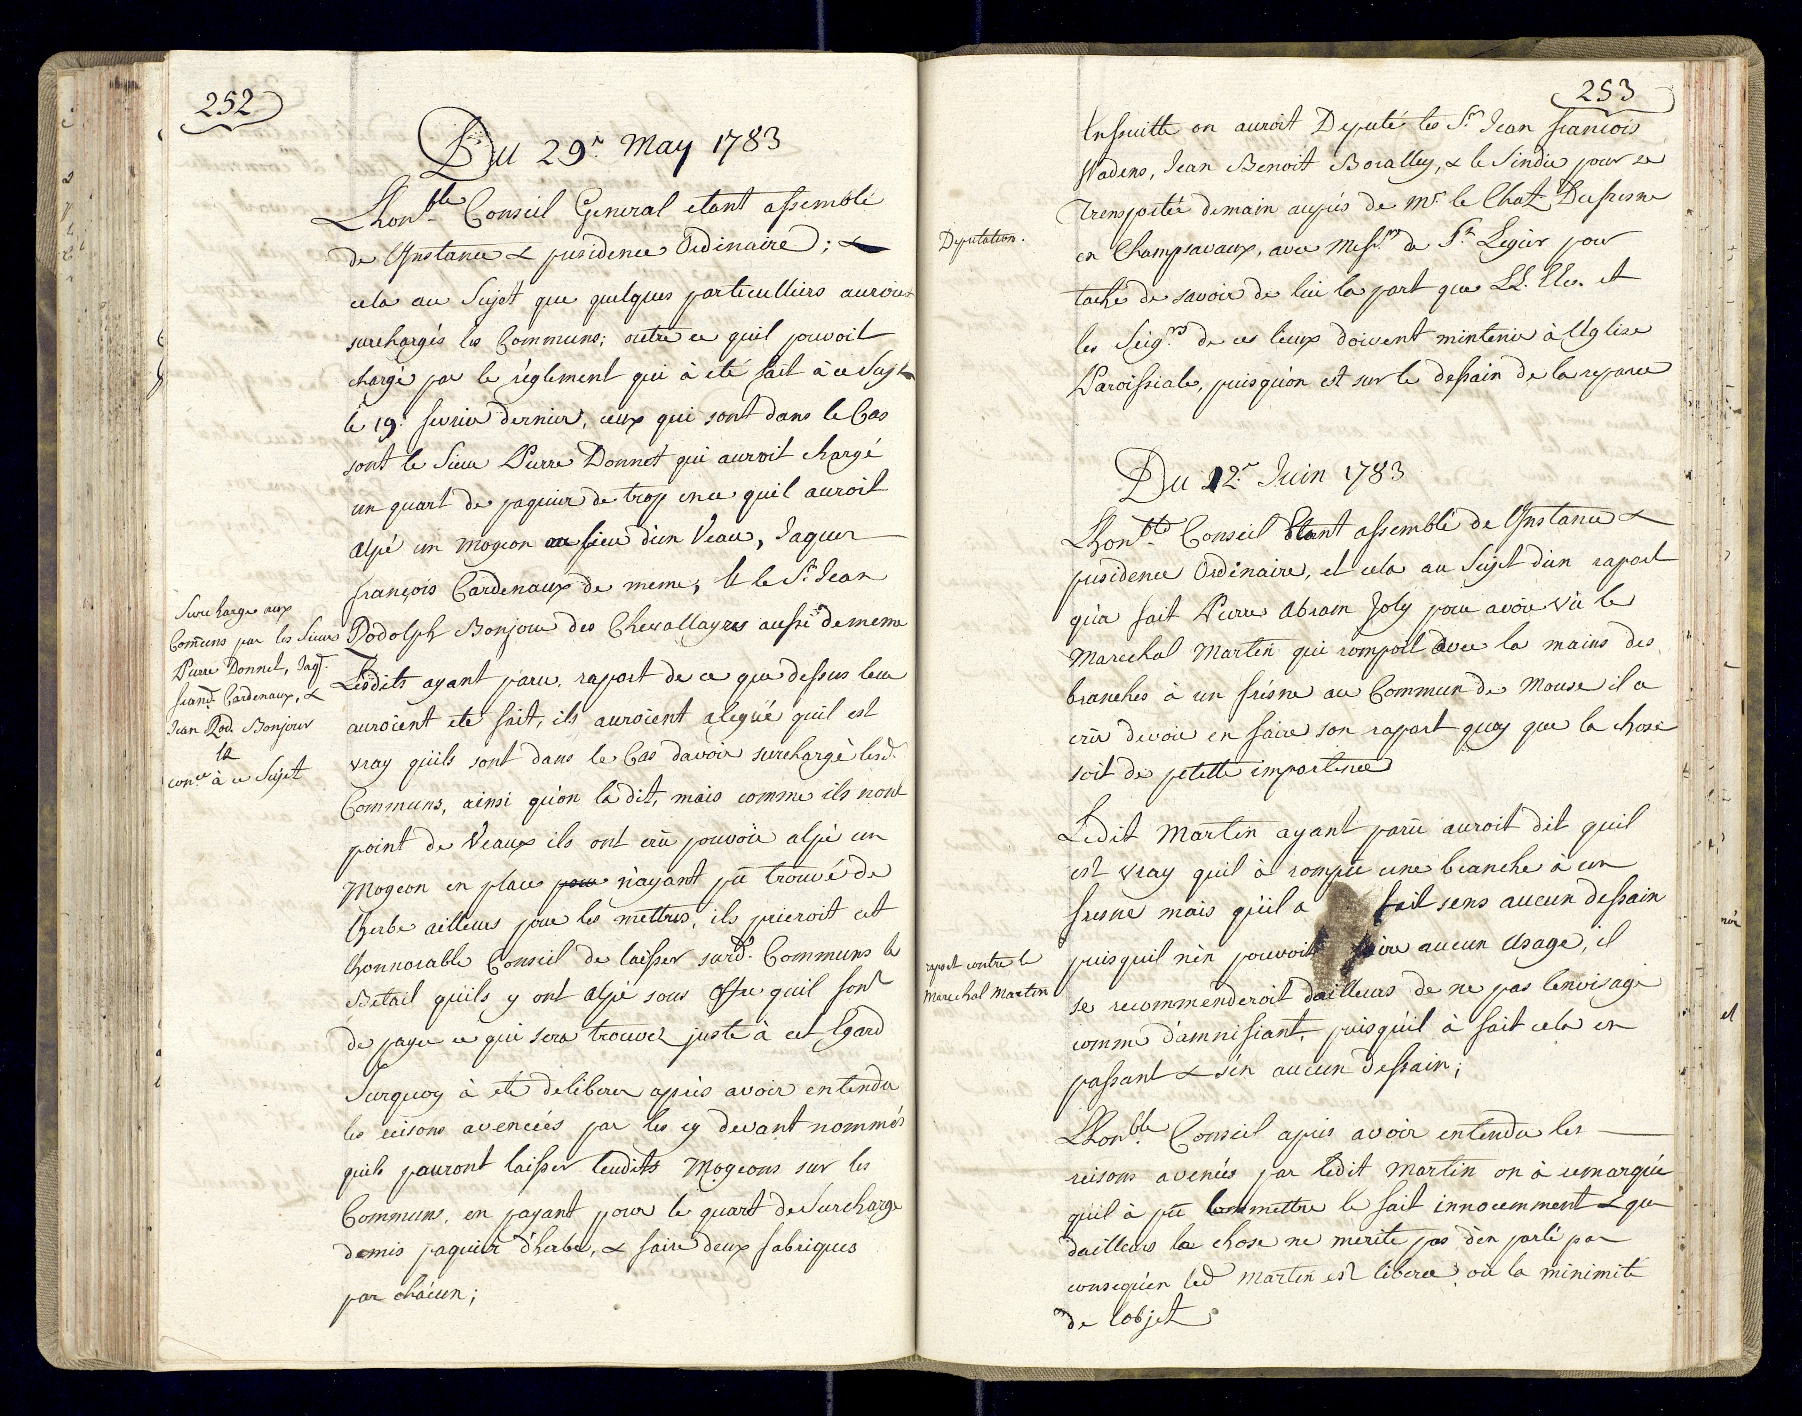 252
Du 29.e May 1783
Lhon.ble Conseil General etant assemblé
de Linstance & presidence Ordinaire; &
cela au Sujet que quelques particulliers auroient
surchargés les Communs; outre ce quil pouvoit
chargé par le règlement qui à eté fait à ce Sujet
le 19.e fevrier dernier, ceux qui sont dans le Cas
sont le Sieur Pierre Donnet qui auroit chargé
un quart de paquier de trop en ce quil auroit
alpé un mogeon au lieu d'un Veau, Jaques
françois Cardenaux de meme, & le Sr. Jean
Rodolph Bonjour des Chevallayres aussi de meme
Surcharge aux
Comuns par les Sieurs
Pierre Donnet, Jaq.
franç. Cardenaux, &
Jean Rod. Bonjour
&
con.ce à ce Sujet
Lesdits ayant paru, raport de ce que dessus leur
auroient ete fait, ils auroient alegué quil est
vray quils sont dans le Cas davoir surchargé lesd.
Communs, ainsi qu'on la dit, mais comme ils nont
point de Veaux ils ont crû pouvoir alpé un
Mogeon en place pour n'ayant pû trouvé de
Lherbe ailleurs pour les mettres, ils prieroit cet
honnorable Conseil de laisser surd. Communs le
Betail quils y ont alpé sous offre quil font
de payer ce qui sera trouvez juste à cet Egard
Surquoy à ete deliberer après avoir entendu
les reisons avencées par les cy devant nommés
quils pouront laisser leudits Mogeons sur les
Communs, en payant pour le quart de Surcharge
demis paquier d'herbe, & faire deux fabriques
par chacun;
253
Ensuitte on auroit Deputé les Sr. Jean francois
Wadens, Jean Benoit Boralley, & le Sindic pour se
Trensporté demain auprès de Mr. le Chat. Dufresne
en Champsavaux, avec Mess.rs de St. Legier pour
Deputation.
taché de savoir de lui la part que LL. EEes. et
les Seig.rs de ces lieux doivent mintenir à LEglise
Paroissiale, puisqu'on est sur le dessain de la reparer
Du 12.e Juin 1783
Lhon.ble Conseil Etant assemblé de Linstance &
presidence Ordinaire, et cela au Sujet d'un raport
qu'a fait Pierre Abram Joly pour avoir vû le
Marechal Martin qui rompoit avec la mains des
branches à un frêsne au Commun de Mouse il a
crû devoir en faire son raport quoy que la chose
soit de petitte importence
Ledit Martin ayant parû auroit dit quil
est vray quil à rompû une branche à un
fresne mais qu'il a fait sens aucun dessain
puisquil n'en pouvoit faire aucun Usage, il
raport contre le
Marechal Martin
se recommenderoit dailleurs de ne pas lenvisagé
comme damnifiant, puisquil à fait cela en
passant & s'en aucun dessain;
Lhon.ble Conseil apres avoir entendu les
reisons avencées par ledit Martin on à remarqué
quil à pû commettre le fait innocemment & que
dailleurs la chose ne merite pas d'en parlé par
consequ'en led. Martin est liberer vu la minimité
de lobjet